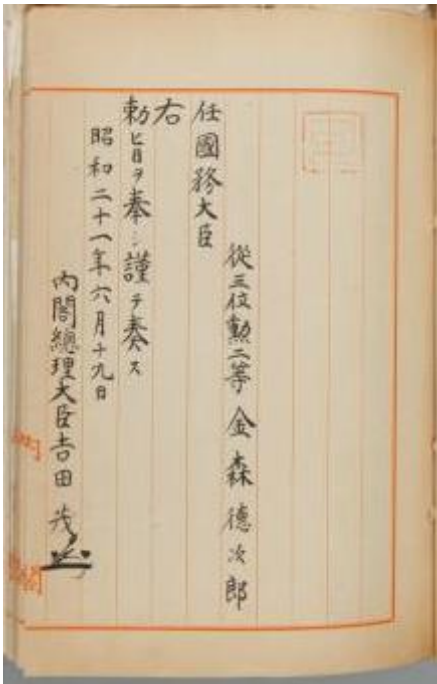 從三位勲二等金森德次郎
任國務大臣
右
勅旨ヲ奉シ謹テ奏ス
昭和二十一年六月十九日
內閣總理大臣吉田茂
內
閣